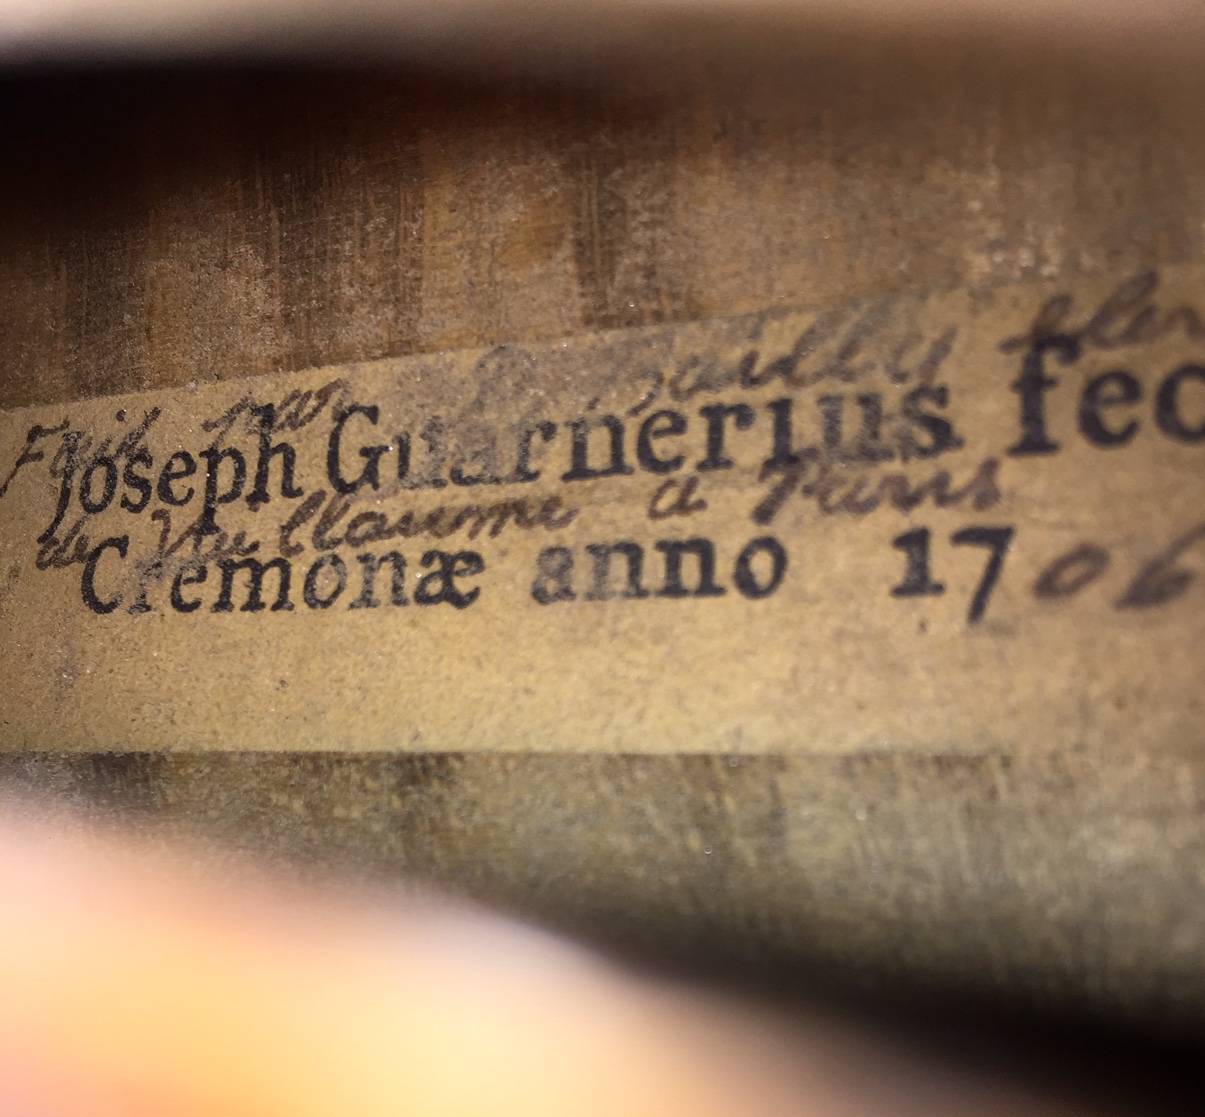 Fait par Bailly élèv
Joseph Guarnerius fec
de Vuillaume a Paris
Cremonæ anno 1706